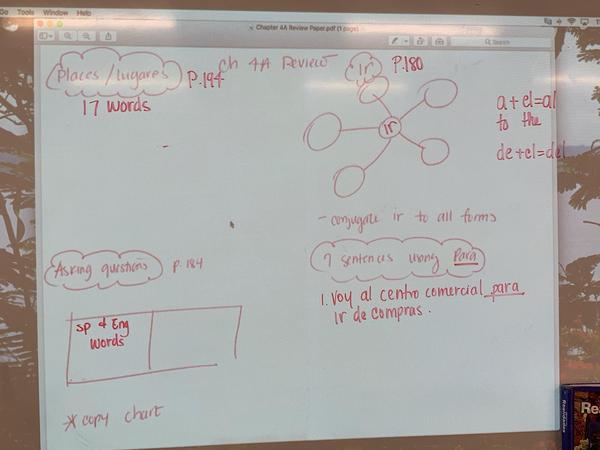 Go Tools Window Help
Chapter 4A Review Paper.pdf (1 page)
Search
Ch 4A Review
Places/Lugares P.194
17 words
Ir P.180
Ir
a + el = al
to the
de + el = del
- conjugate ir to all forms
Asking questions P. 184
Sp & Eng
words
* copy chart
7 sentences using Para
1. Voy al centro comercial para
Ir de compras.
Re
Realidades